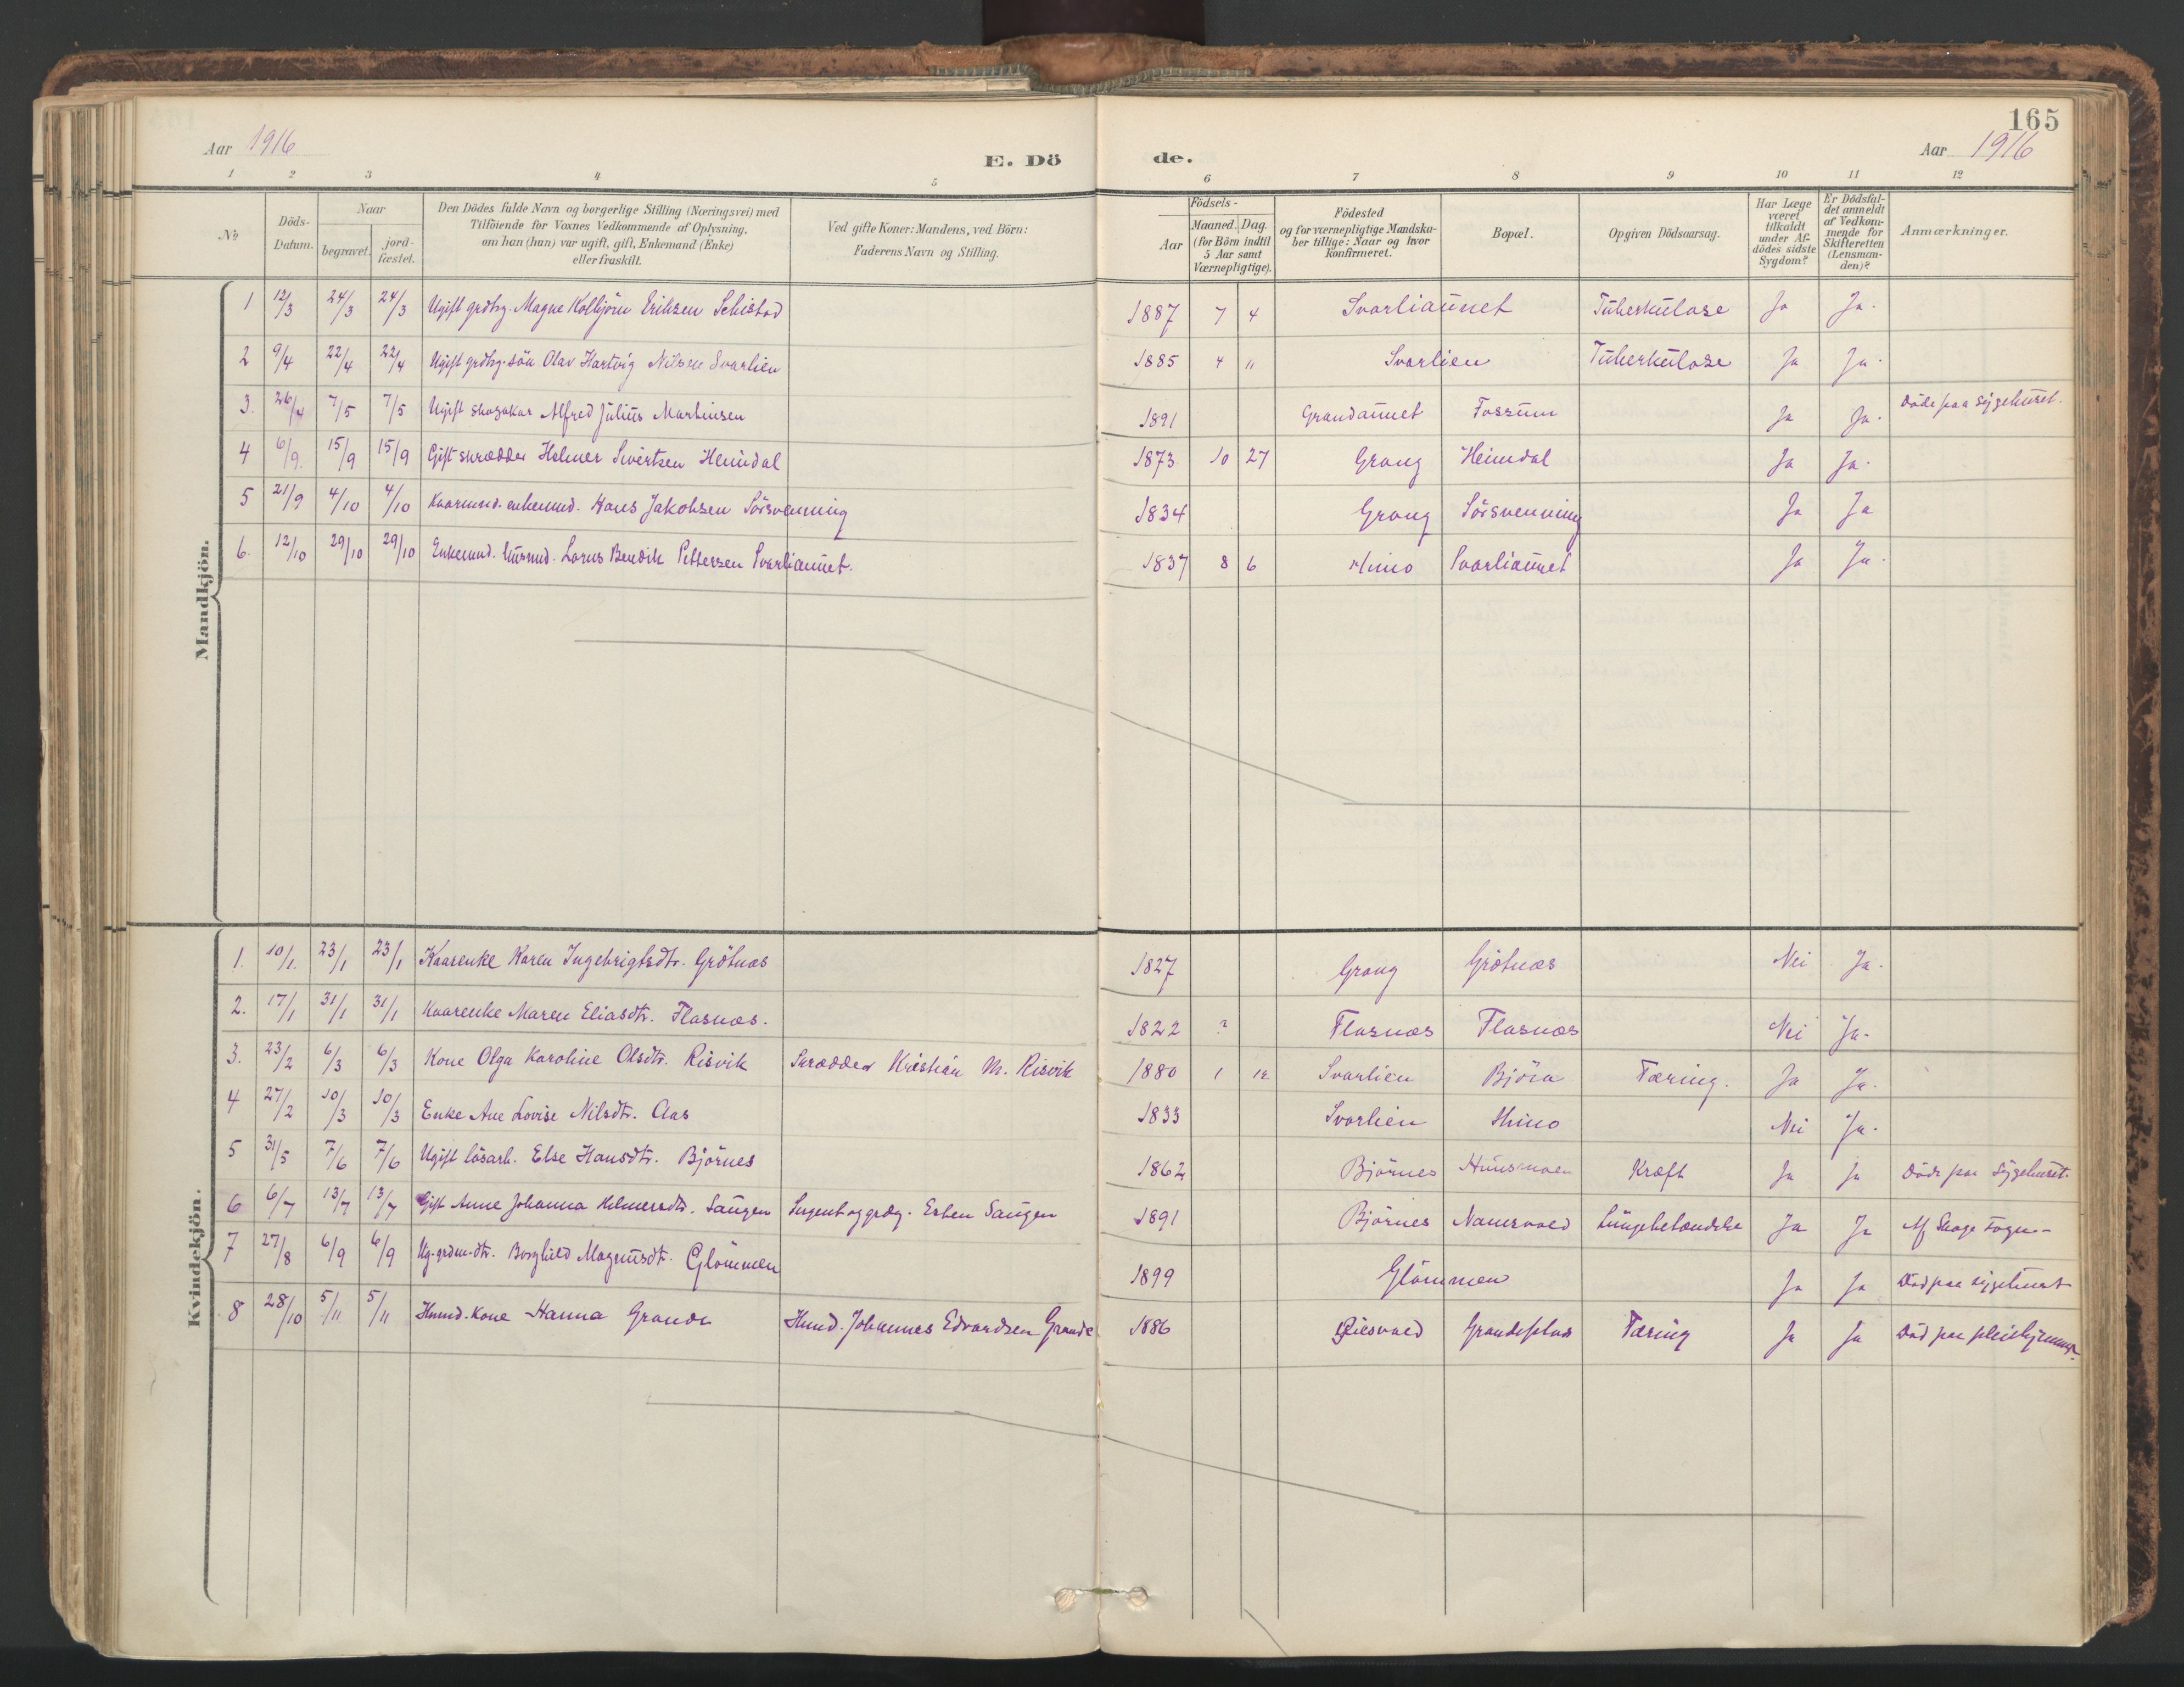 165
Aar 1916
E. Dö de.
Aar 1916
1 2 3 4 5 6 7 8 9 10 11 12
No
Döds-Datum.
Naar
begravet.
jord-fæstet.
Den Dödes fulde Navn og borgerlige Stilling (Næringsvei) med
Tilföiende for Voxnes Vedkommende af Oplysning,
om han (hun) var ugift, gift, Enkemand (Enke)
eller fraskilt.
Ved gifte Koner: Mandens, ved Börn:
Faderens Navn og Stilling.
Födsels-
Aar
Maaned. Dag.
(for Börn indtil
5 Aar samt
Værnepligtige).
Födested
og for værnepligtige Mandska-
ber tillige: Naar og hvor
konfirmeret.
Bopæl.
Opgiven Dödsaarsag.
Har Læge
været
tilkaldt
under Af-
dödes sidste
Sygdom?
Er Dödsfal-
det anmeldt
af Vedkom-
mende for
Skifteretten
(Lensman-
den)?
Anmærkninger.
Mandkjön.
1 12/3 24/3 24/3 Ugift grdbrg. Magne Kolbjörn Eriksen Sehistad 1887 7 4 Svarliaunet Tuberkulose Ja Ja.
2 9/4 22/4 22/4 Ugift grdbrg. sön Olav Hartvig Nilsen Svarlien 1885 4 " Svarlien Tuberkulose Ja Ja.
3. 26/4 7/5 7/5 Ugift skogskar Alfred Julius Martinsen 1891 Grandaunet Fossum Ja Ja. Döde paa sygehuset.
4 6/9. 15/9 15/9 Gift skrædder Helmer Sivertsen Heimdal 1873 10 27 Grong Heimdal Ja Ja.
5 21/9 4/10 4/10 Kaarmnd. enkemnd. Hans Jakobsen Sörsvenning 1834 Grong Sörsvenning Ja Ja
6. 12/10 29/10 29/10 Enkemnd. husmnd. Lorns Bendik Pettersen Svarliaunet. 1837 8 6 Himo Svarliaunet Ja Ja.
Kvindekjön.
1. 10/1. 23/1 23/1 Kaarenke Karen Ingebrigtsdtr. Grötnæs 1827 Grong Grötnæs Nei Ja.
2. 17/1 31/1 31/1 Kaarenke Maren Eliasdtr. Flasnæs. 1822 ? Flasnæs Flasnæs Nei Ja.
3. 23/2 6/3 6/3 Kone Olga Karoline Olsdtr. Risvik Skrædder Kristian M. Risvik 1880 1 12 Svarlien Björa Tæring. Ja Ja.
4 27/2 10/3 10/3 Enke Ane Lovise Nilsdtr. Aas 1833 Svarlien Himo Nei Ja.
5 31/5 7/6 7/6 Ugift lösarb. Else Hansdtr. Björnes 1862 Björnes Kræft Ja Ja Döde paa Sygehuset.
6 6/7 13/7 13/7 Gift Anne Johanna Helmersdtr. Saugen Sergent og grdbrg. Esten Saugen 1891 Björnes Namsvaed Lungebetændelse Ja Ja Af Skage sogn-
7 27/8 6/9 6/9 Ug. grdm-dtr. Borghild Magnusdtr. Glömmen 1899 Glömmen Ja Ja Död paa sygehuset
8 28/10 5/11 5/11 Hmnd. kone Hanna Grande Hmnd. Johannes Edvardsen Grande 1886 Grandeplads Tæring Ja Ja Död paa pleiehjemmet.